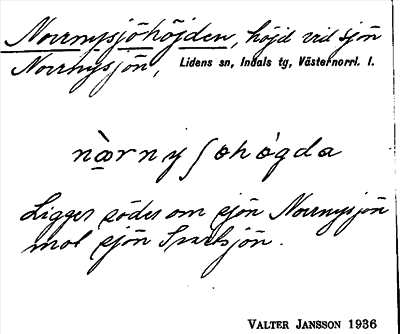 Norrnysjöhöjden, höjd vid sjön
Norrnysjön, Lidens sn, Indals tg, Västernorrl. l.
næ̀rnyʃøhø̀gda
Ligger söder om sjön Norrnysjön
mot sjön Svartsjön.
VALTER JANSSON 1936